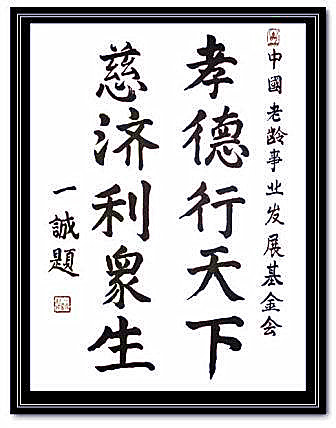 中國老龄事业发展基金会
孝德行天下
慈济利衆生
一誠題